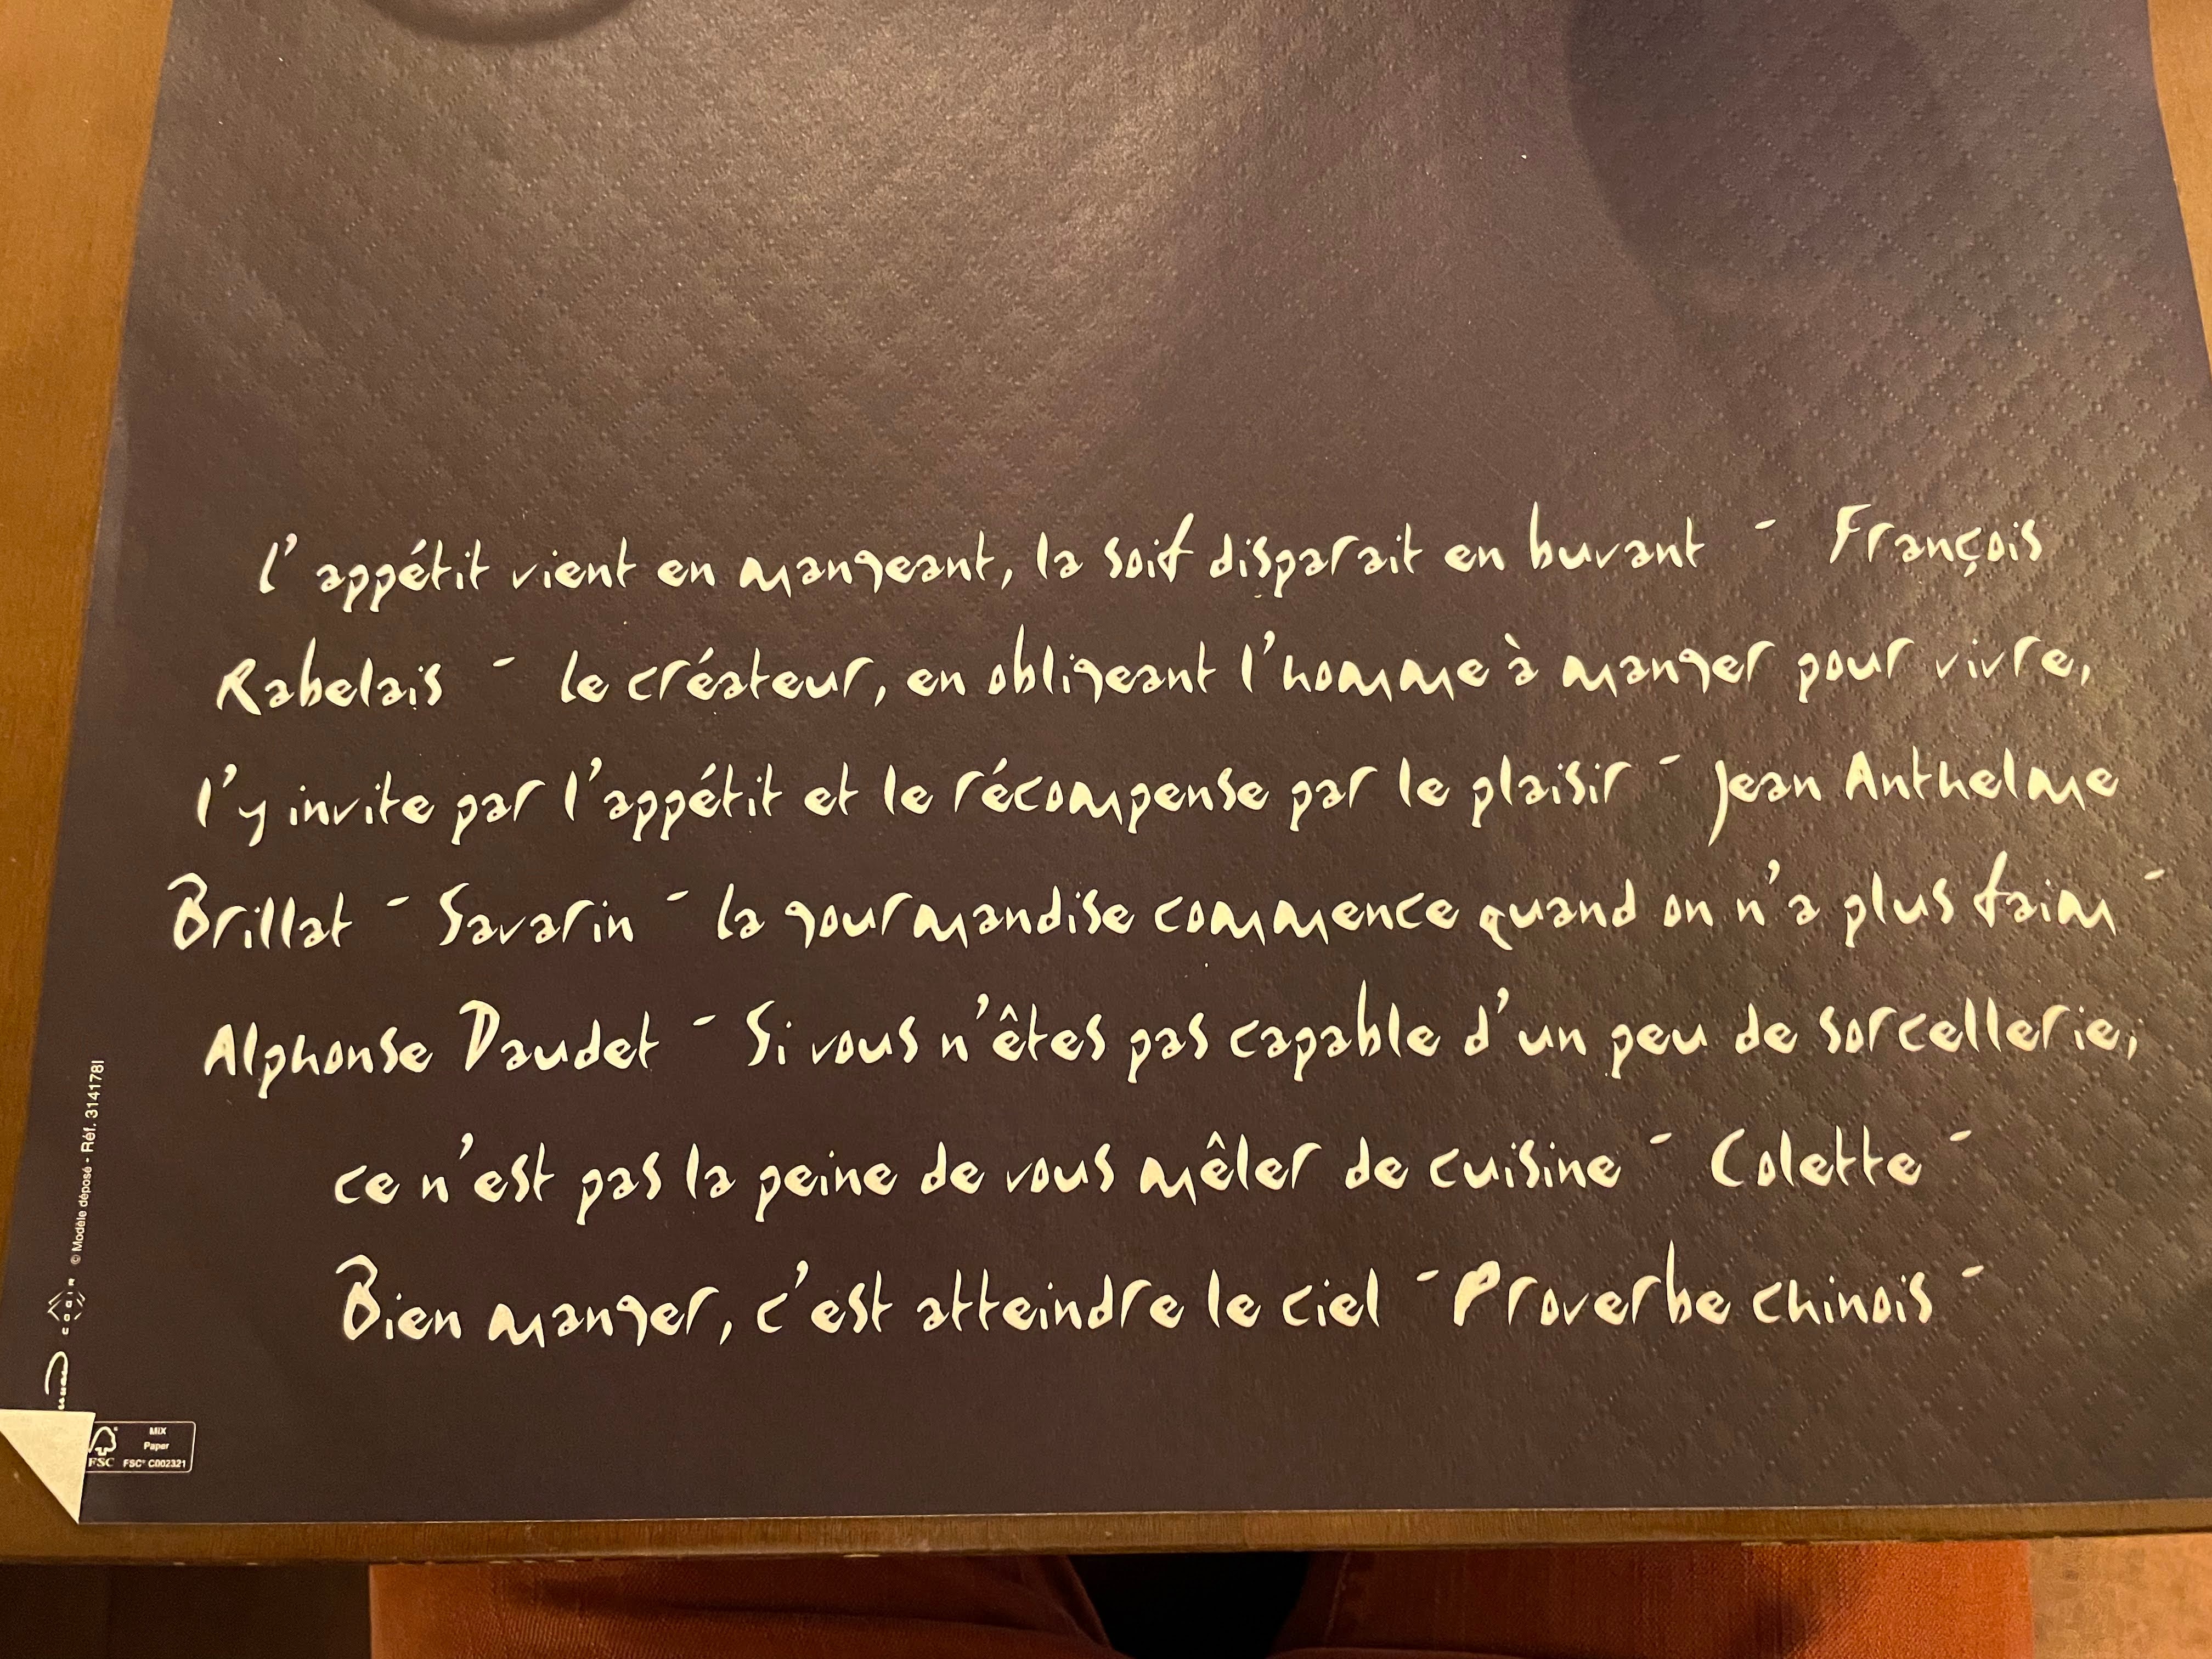 l'appétit vient en mangeant, la soif disparait en buvant - François
Rabelais - le créateur, en obligeant l'homme à manger pour vivre,
l'y invite par l'appétit et le récompense par le plaisir - Jean Anthelme
Brillat - Savarin - la gourmandise commence quand on n'a plus faim -
Alphonse Daudet - Si vous n'êtes pas capable d'un peu de sorcellerie,
ce n'est pas la peine de vous mêler de cuisine - Colette -
Bien manger, c'est atteindre le ciel - Proverbe chinois -
© Modèle déposé - Réf. 314178I
MIX
Paper
FSC FSC® C002321